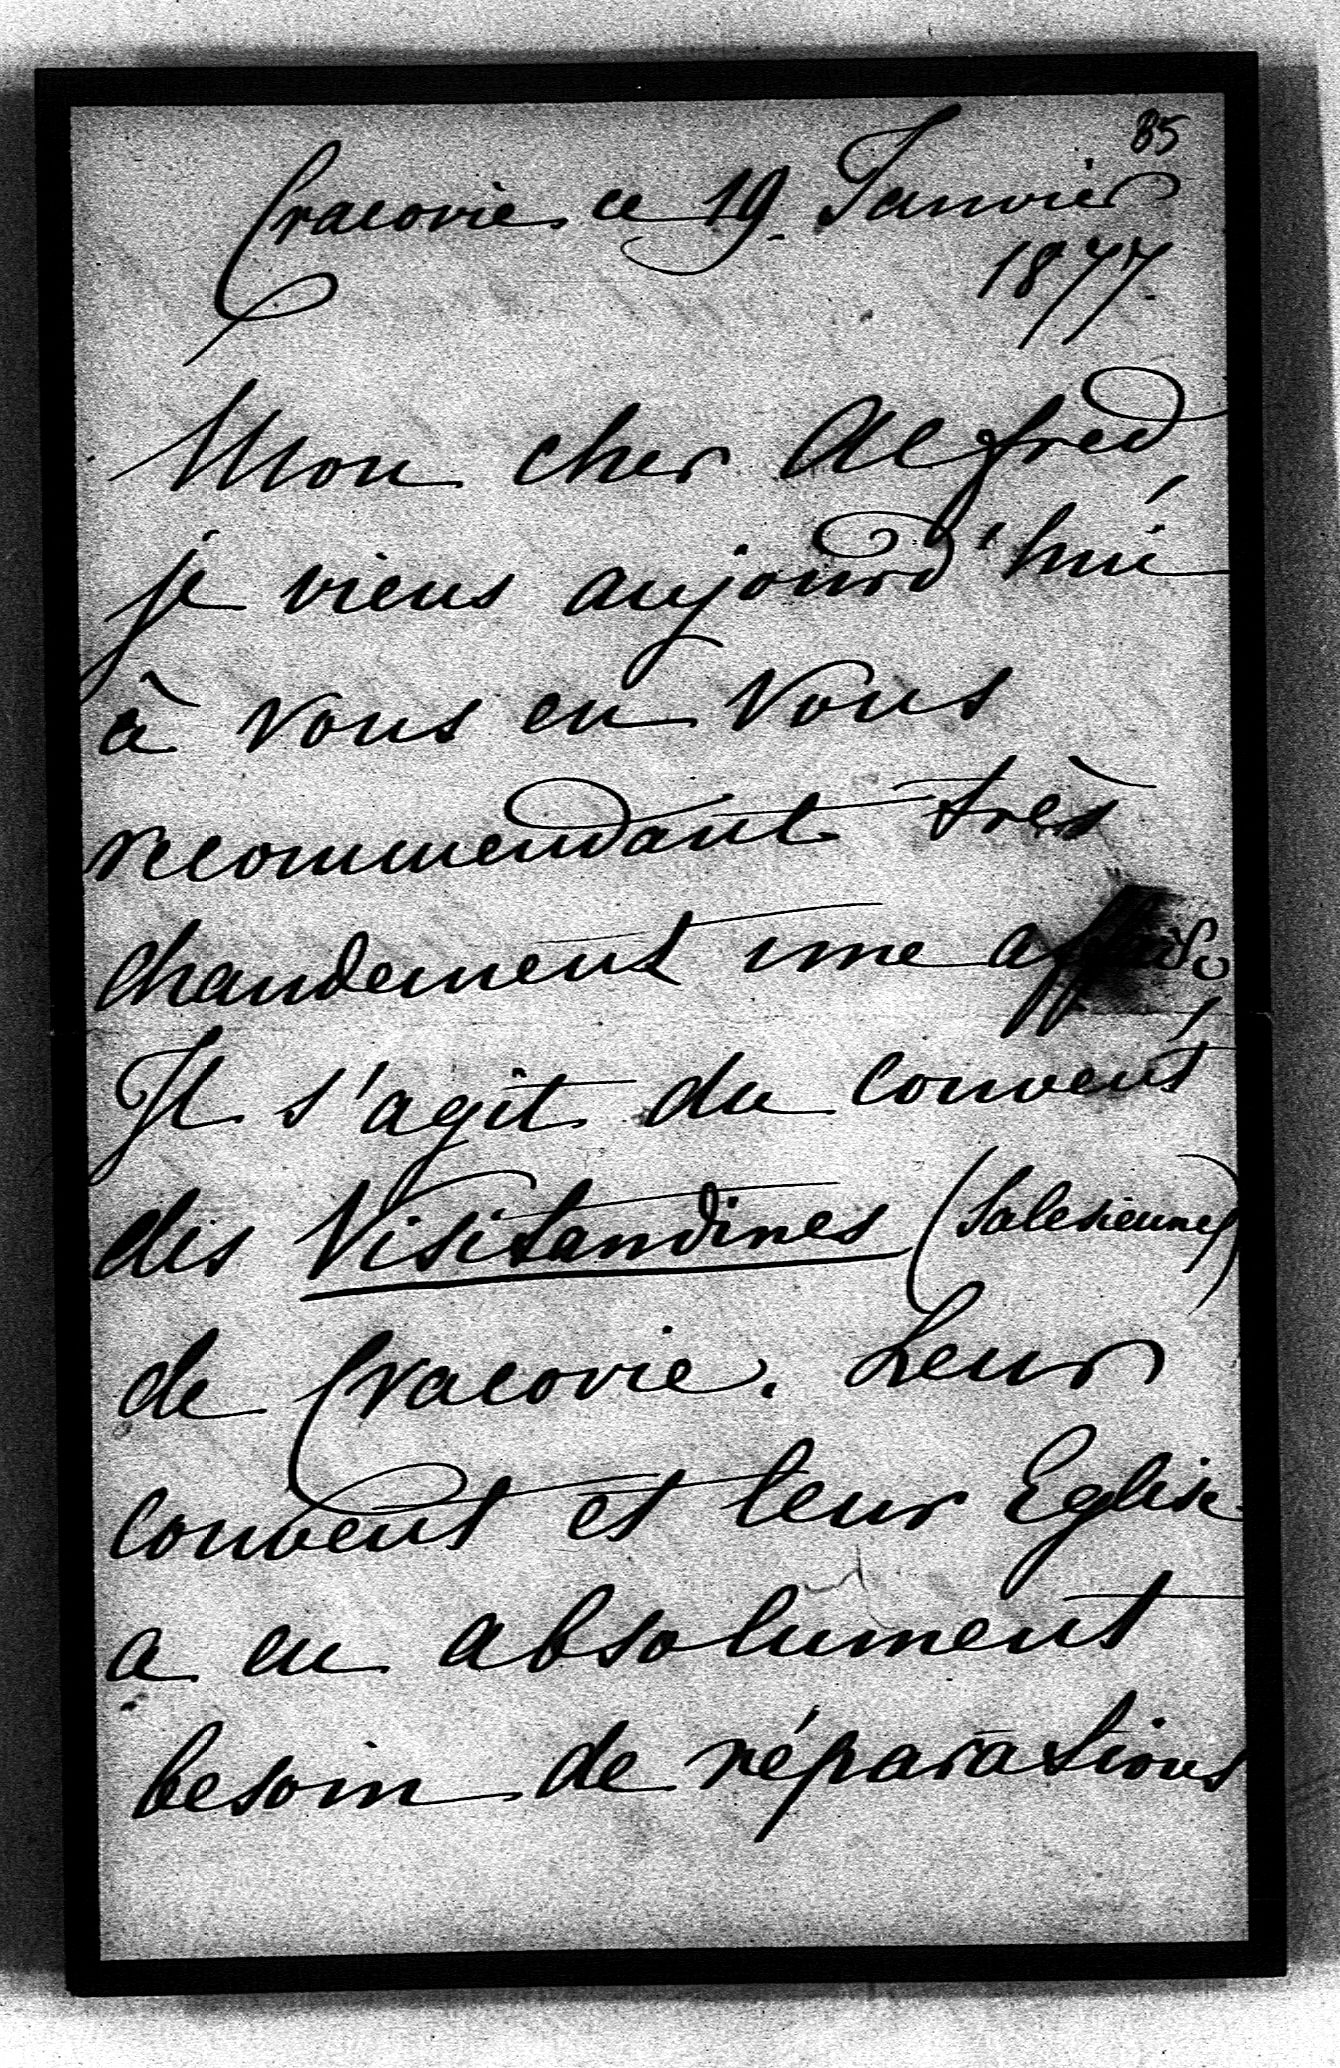 85
Cracovie ce 19 Janvier
1877.
Mon cher Alfred,
je viens aujourd'hui
à vous en vous
recommendant très
chaudement une affaire
Il s'agit du couvent
des Visitandines (Salesiennes)
de Cracovie. Leur
couvent et leur Eglise
a eu absolument
besoin de réparations